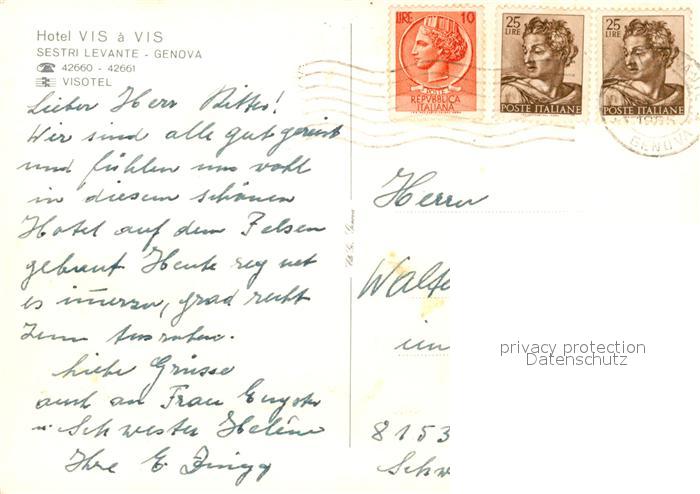 Hotel VIS à VIS
SESTRI LEVANTE - GENOVA
42660 - 42661
VISOTEL
LIRE 10
POSTE
REPVBBLICA
ITALIANA
25
LIRE
POSTE ITALIANE
25
LIRE
POSTE ITALIANE
GENOVA
Lieber Herr
Wir sind alle gut gereist
und fühlen uns wohl
in diesem schönen
Hotel auf dem Felsen
gebaut Heute regnet
es immerzu, grad recht
zum Ausruhen.
Liebe Grüsse
auch an Frau
u. Schwester Helène
Ihre E.
Herrn
Walte
im
8153
Schw
privacy protection
Datenschutz